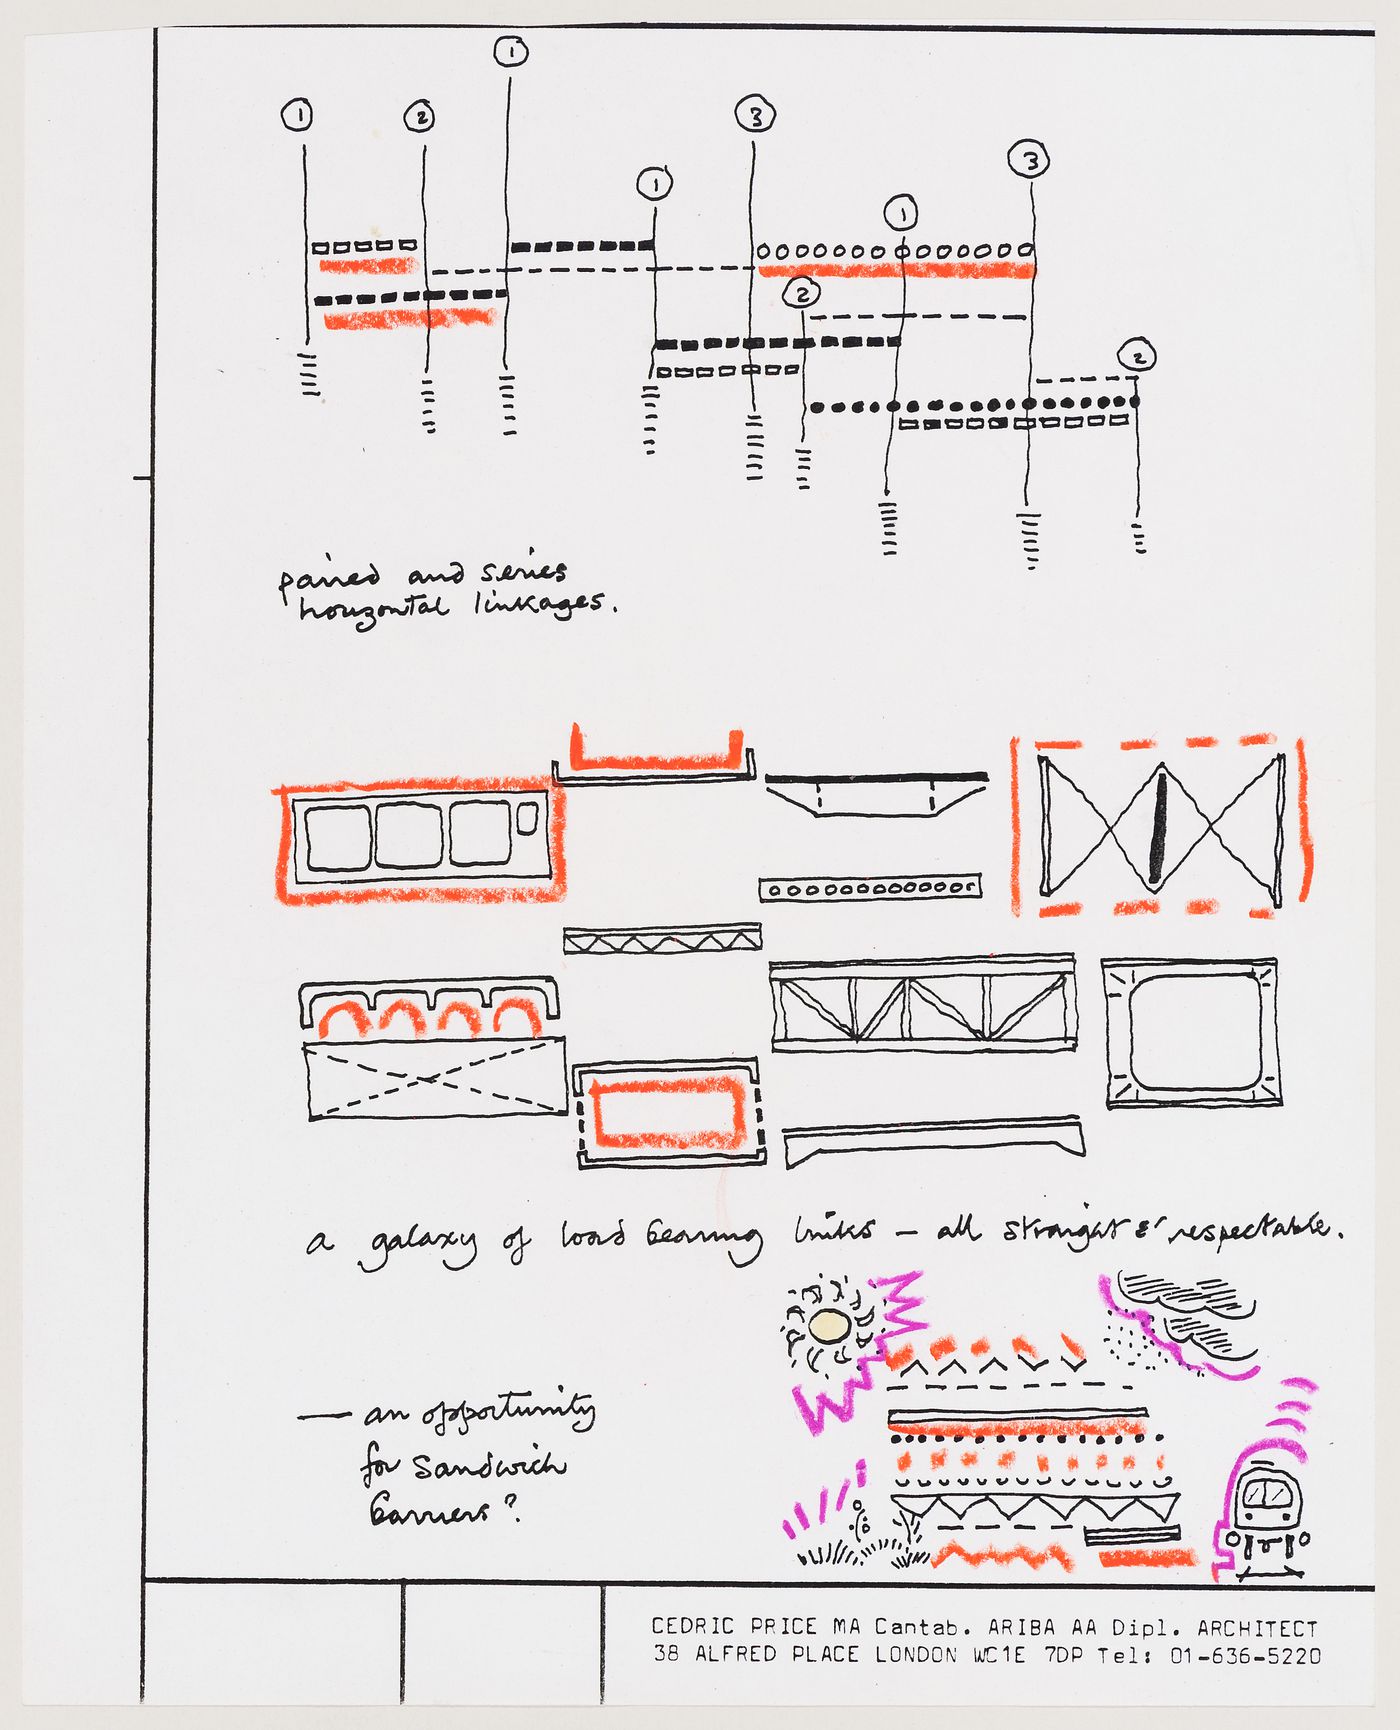 1
1
2
1
3
3
1
2
2
paired and series
horizontal linkages.
a galaxy of load bearing links – all straight & respectable.
— an opportunity
for sandwich
barriers?
CEDRIC PRICE MA Cantab. ARIBA AA Dipl. ARCHITECT
38 ALFRED PLACE LONDON WC1E 7DP Tel: 01-636-5220